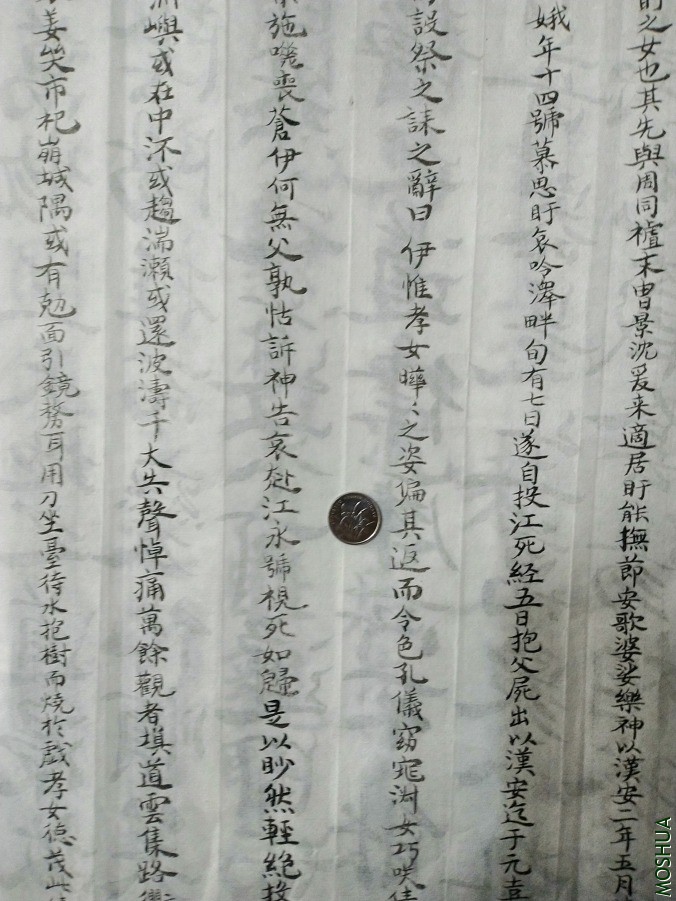 之女也其先與周同祖末曹景沉爰来適居盱能撫節安歌婆娑樂神以漢安二年五月
娥年十四號慕思盱哀吟澤畔旬有七日遂自投江死経五日抱父屍出以漢安迄于元嘉
設祭之誄之辭曰伊惟孝女曄〻之姿偏其返而令色孔儀窈窕淑女巧咲倩
施嗟喪蒼伊何無父孰怙訴神告哀赴江永號視死如歸是以眇然輕絕投
嶼或在中沠或趨湍瀨或還波濤千夫共聲悼痛萬餘觀者填道雲集路衢
姜哭市杞崩城隅或有勊面引鏡剺耳用刀坐臺待水抱樹而燒於戲孝女德茂此
MOSHUA